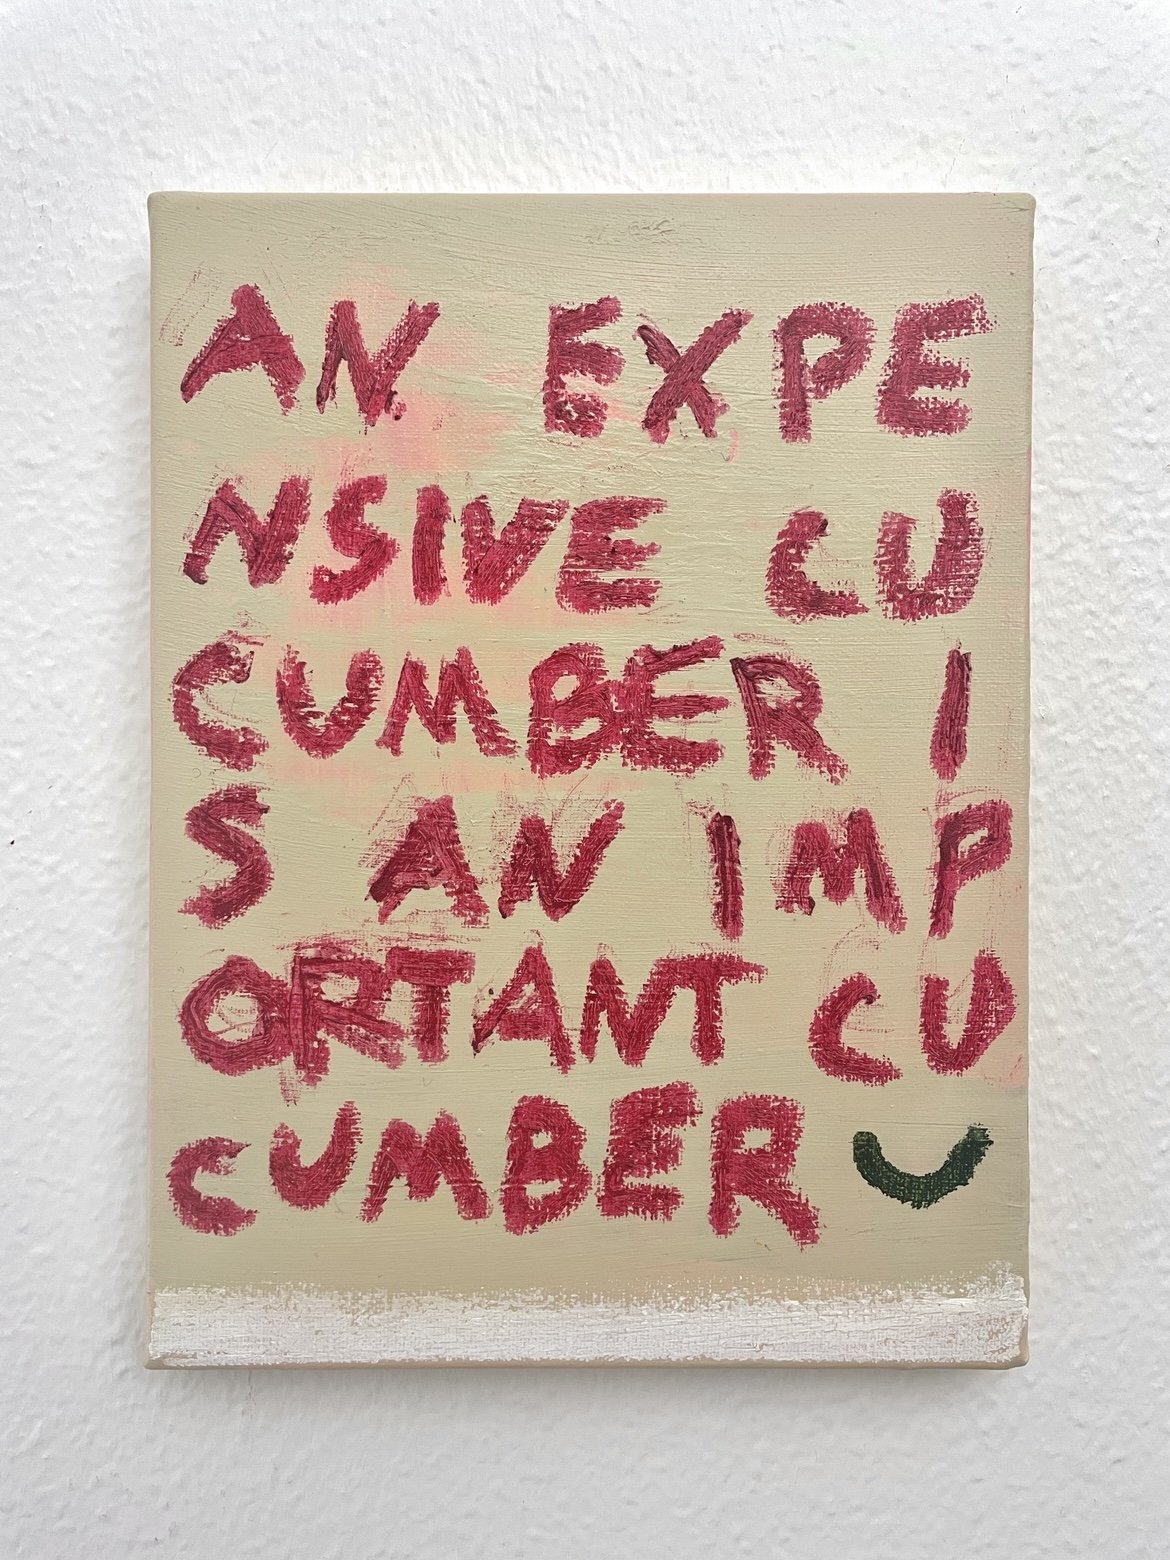 AN EXPE
NSIVE CU
CUMBER I
S AN IMP
ORTANT CU
CUMBER